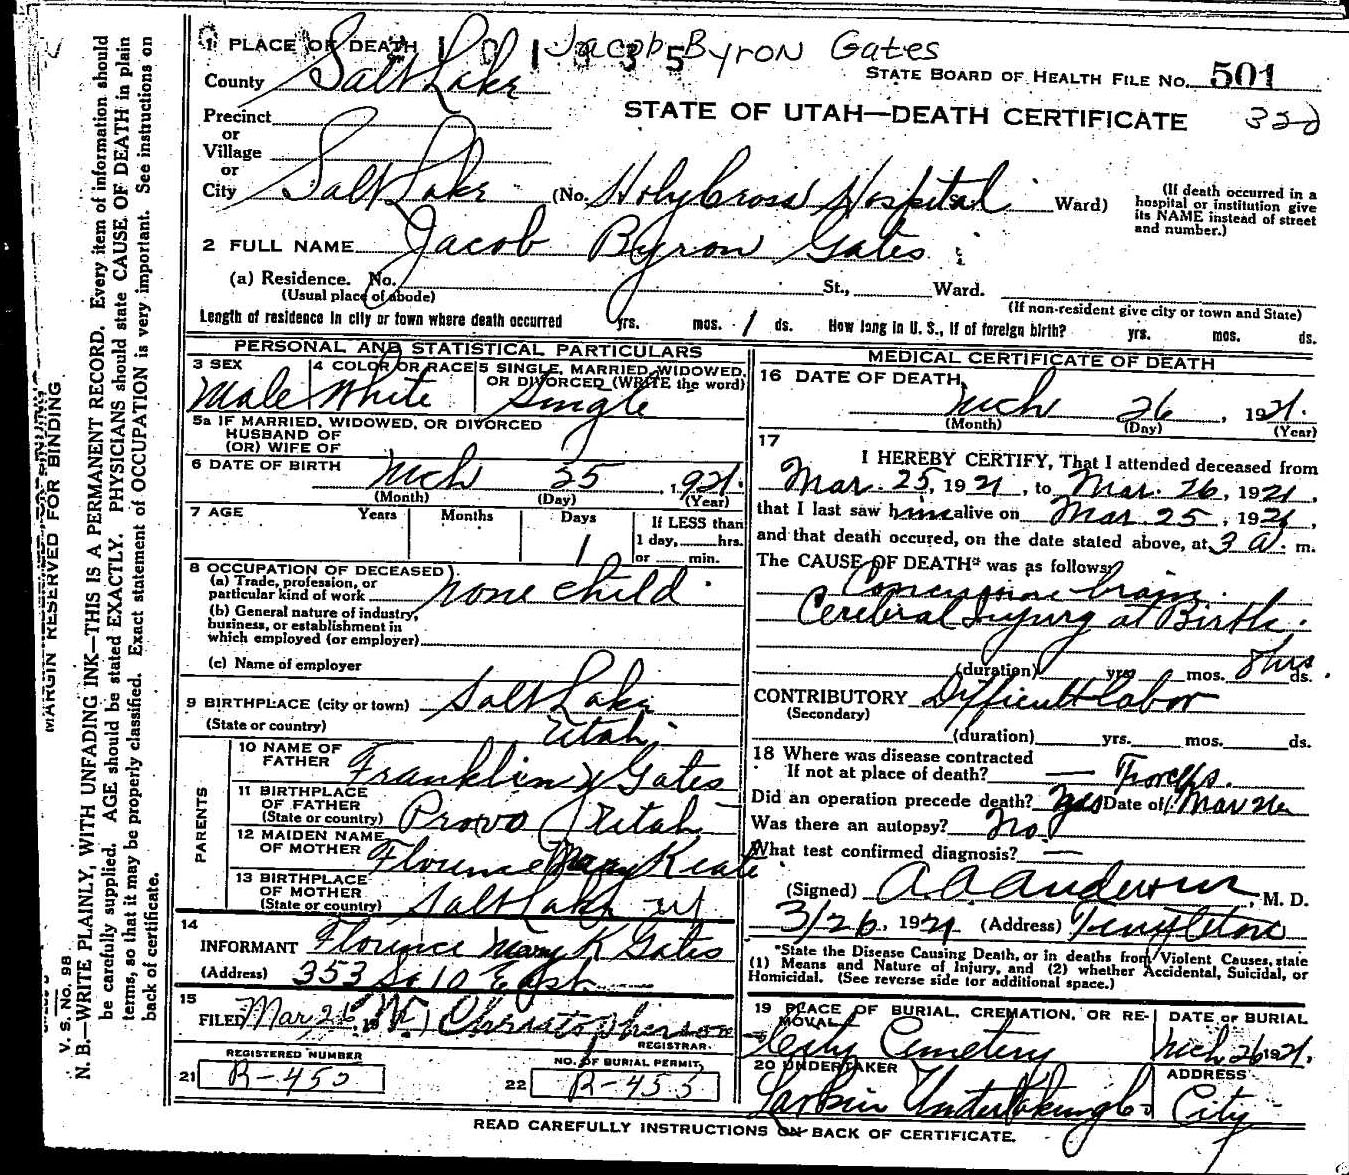 Jacob Byron Gates
1 PLACE OF DEATH
STATE BOARD OF HEALTH FILE No. 501
County Salt Lake
STATE OF UTAH—DEATH CERTIFICATE
Precinct
or
Village
or
City Salt Lake (No. Holy Cross Hospital Ward)
(If death occurred in a hospital or institution give its NAME instead of street and number.)
2 FULL NAME Jacob Byron Gates
(a) Residence. No. St., Ward.
(Usual place of abode) (If non-resident give city or town and State)
Length of residence in city or town where death occurred yrs. mos. 1 ds. How long in U. S., if of foreign birth? yrs. mos. ds.
PERSONAL AND STATISTICAL PARTICULARS
3 SEX Male
4 COLOR OR RACE White
5 SINGLE, MARRIED, WIDOWED, OR DIVORCED (WRITE the word) Single
5a IF MARRIED, WIDOWED, OR DIVORCED
HUSBAND OF
(OR) WIFE OF
6 DATE OF BIRTH Mch 25, 1921.
(Month) (Day) (Year)
7 AGE Years Months Days 1
If LESS than
1 day, hrs.
or min.
8 OCCUPATION OF DECEASED
(a) Trade, profession, or
particular kind of work none child
(b) General nature of industry,
business, or establishment in
which employed (or employer)
(c) Name of employer
9 BIRTHPLACE (city or town) Salt Lake
(State or country) Utah
PARENTS
10 NAME OF FATHER Franklin Y Gates
11 BIRTHPLACE OF FATHER
(State or country) Provo Utah
12 MAIDEN NAME OF MOTHER Florence Mary Keate
13 BIRTHPLACE OF MOTHER
(State or country) Salt Lake Ut
14
INFORMANT Florence Mary K Gates
(Address) 353 So 10 East
15
FILED Mar 26 19 Christopherson
REGISTRAR.
REGISTERED NUMBER
21 R-455
NO. OF BURIAL PERMIT
22 R-455
MEDICAL CERTIFICATE OF DEATH
16 DATE OF DEATH
Mch 26, 1921.
(Month) (Day) (Year)
17
I HEREBY CERTIFY, That I attended deceased from
Mar. 25, 1921, to Mar. 26, 1921,
that I last saw him alive on Mar. 25, 1921,
and that death occured, on the date stated above, at 3 a. m.
The CAUSE OF DEATH* was as follows:
brain.
Cerebral Injury at Birth.
(duration) yrs. mos. 8 hrs. ds.
CONTRIBUTORY Difficult labor
(Secondary)
(duration) yrs. mos. ds.
18 Where was disease contracted
If not at place of death? — Forceps.
Did an operation precede death? Yes Date of Mar 26
Was there an autopsy? No
What test confirmed diagnosis? —
(Signed) A. A. Anderson, M. D.
3/26, 1921 (Address) Templeton
*State the Disease Causing Death, or in deaths from Violent Causes, state
(1) Means and Nature of Injury, and (2) whether Accidental, Suicidal, or
Homicidal. (See reverse side for additional space.)
19 PLACE OF BURIAL, CREMATION, OR REMOVAL City Cemetery
DATE OF BURIAL Mch 26 1921.
20 UNDERTAKER Larkin Undertaking Co
ADDRESS City
READ CAREFULLY INSTRUCTIONS ON BACK OF CERTIFICATE.
MARGIN RESERVED FOR BINDING
V. S. No. 98
N. B.—WRITE PLAINLY, WITH UNFADING INK—THIS IS A PERMANENT RECORD. Every item of information should
be carefully supplied. AGE should be stated EXACTLY. PHYSICIANS should state CAUSE OF DEATH in plain
terms, so that it may be properly classified. Exact statement of OCCUPATION is very important. See instructions on
back of certificate.